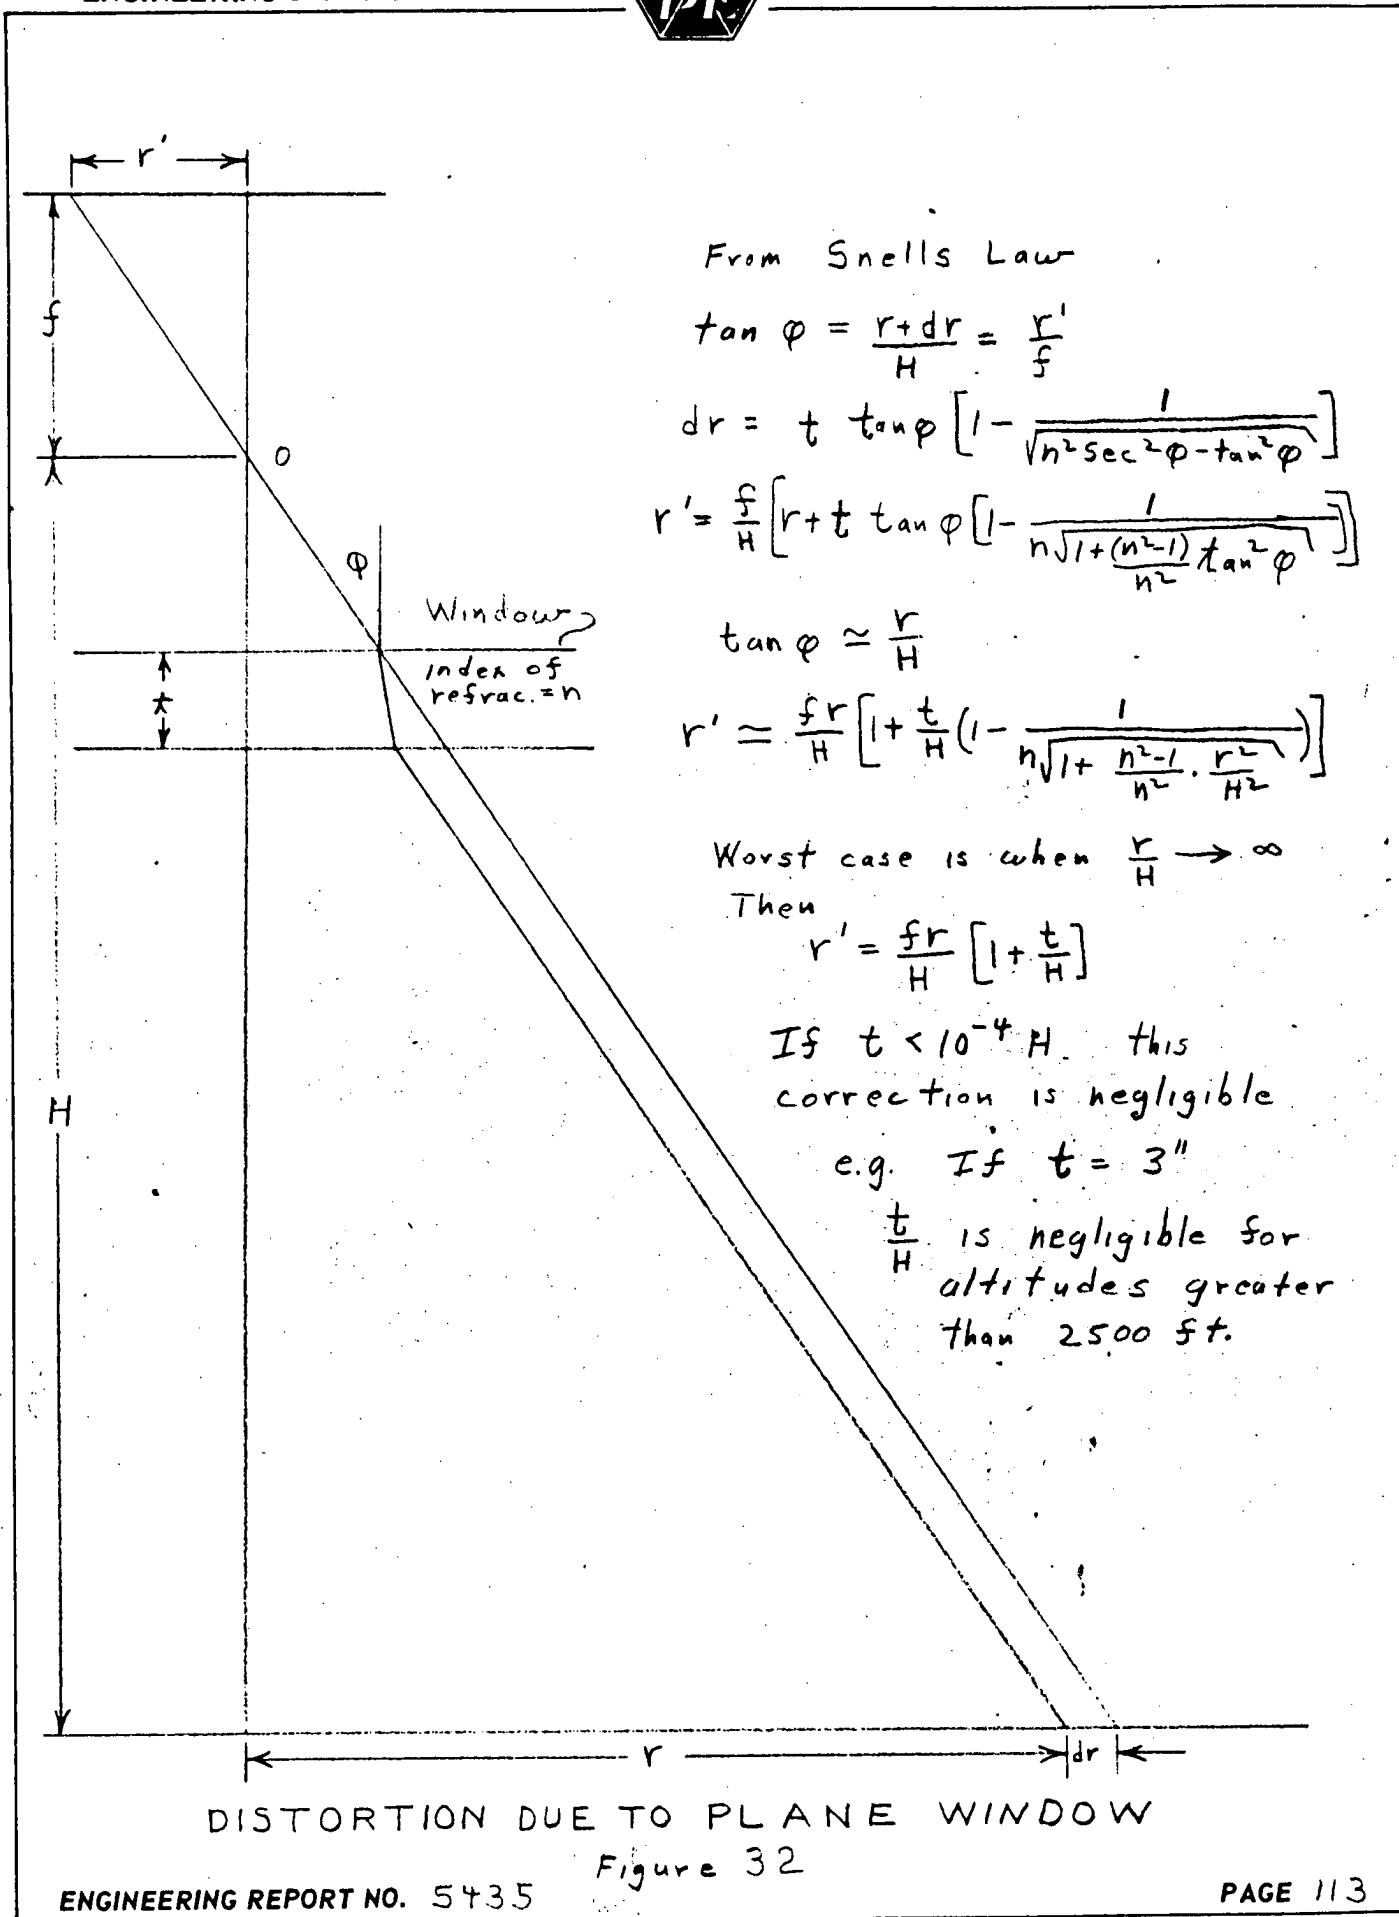 r'
f
O
φ
Window
index of
refrac. = n
t
H
From Snells Law
tan φ = (r + dr)/H = r'/f
dr = t tan φ [1 - 1/√(n² sec² φ - tan² φ)]
r' = f/H [r + t tan φ [1 - 1/(n√(1 + (n²-1)/n² tan² φ))]]
tan φ ≃ r/H
r' ≃ fr/H [1 + t/H (1 - 1/(n√(1 + (n²-1)/n² · r²/H²)))]
Worst case is when r/H → ∞
Then
r' = fr/H [1 + t/H]
If t < 10⁻⁴ H. this
correction is negligible
e.g. If t = 3"
t/H is negligible for
altitudes greater
than 2500 ft.
r
dr
DISTORTION DUE TO PLANE WINDOW
Figure 32
ENGINEERING REPORT NO. 5435
PAGE 113